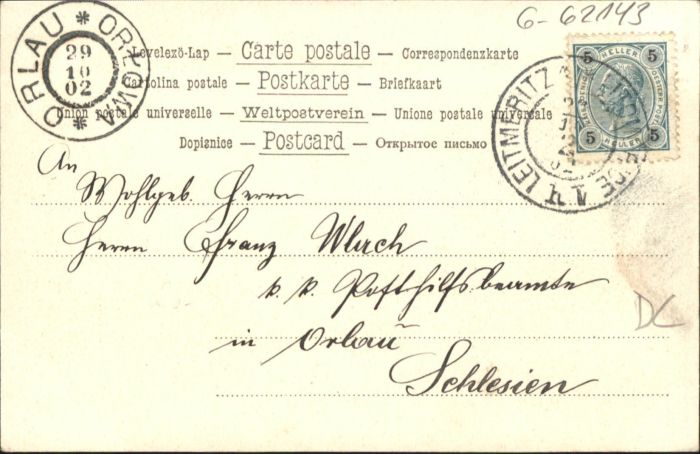 G-62143
ORLAU * ORLOWA *
29
10
02
Levelezö-Lap — Carte postale — Correspondenzkarte
Cartolina postale — Postkarte — Briefkaart
Union postale universelle — Weltpostverein — Unione postale universale
Dopisnice — Postcard — Открытое письмо
5 HELLER 5
5 HELLER 5
LEITMERITZ
An
Wohlgeb. Herrn
Herrn Franz
k. k. Posthilfsbeamte
in Orlau
Schlesien
DC